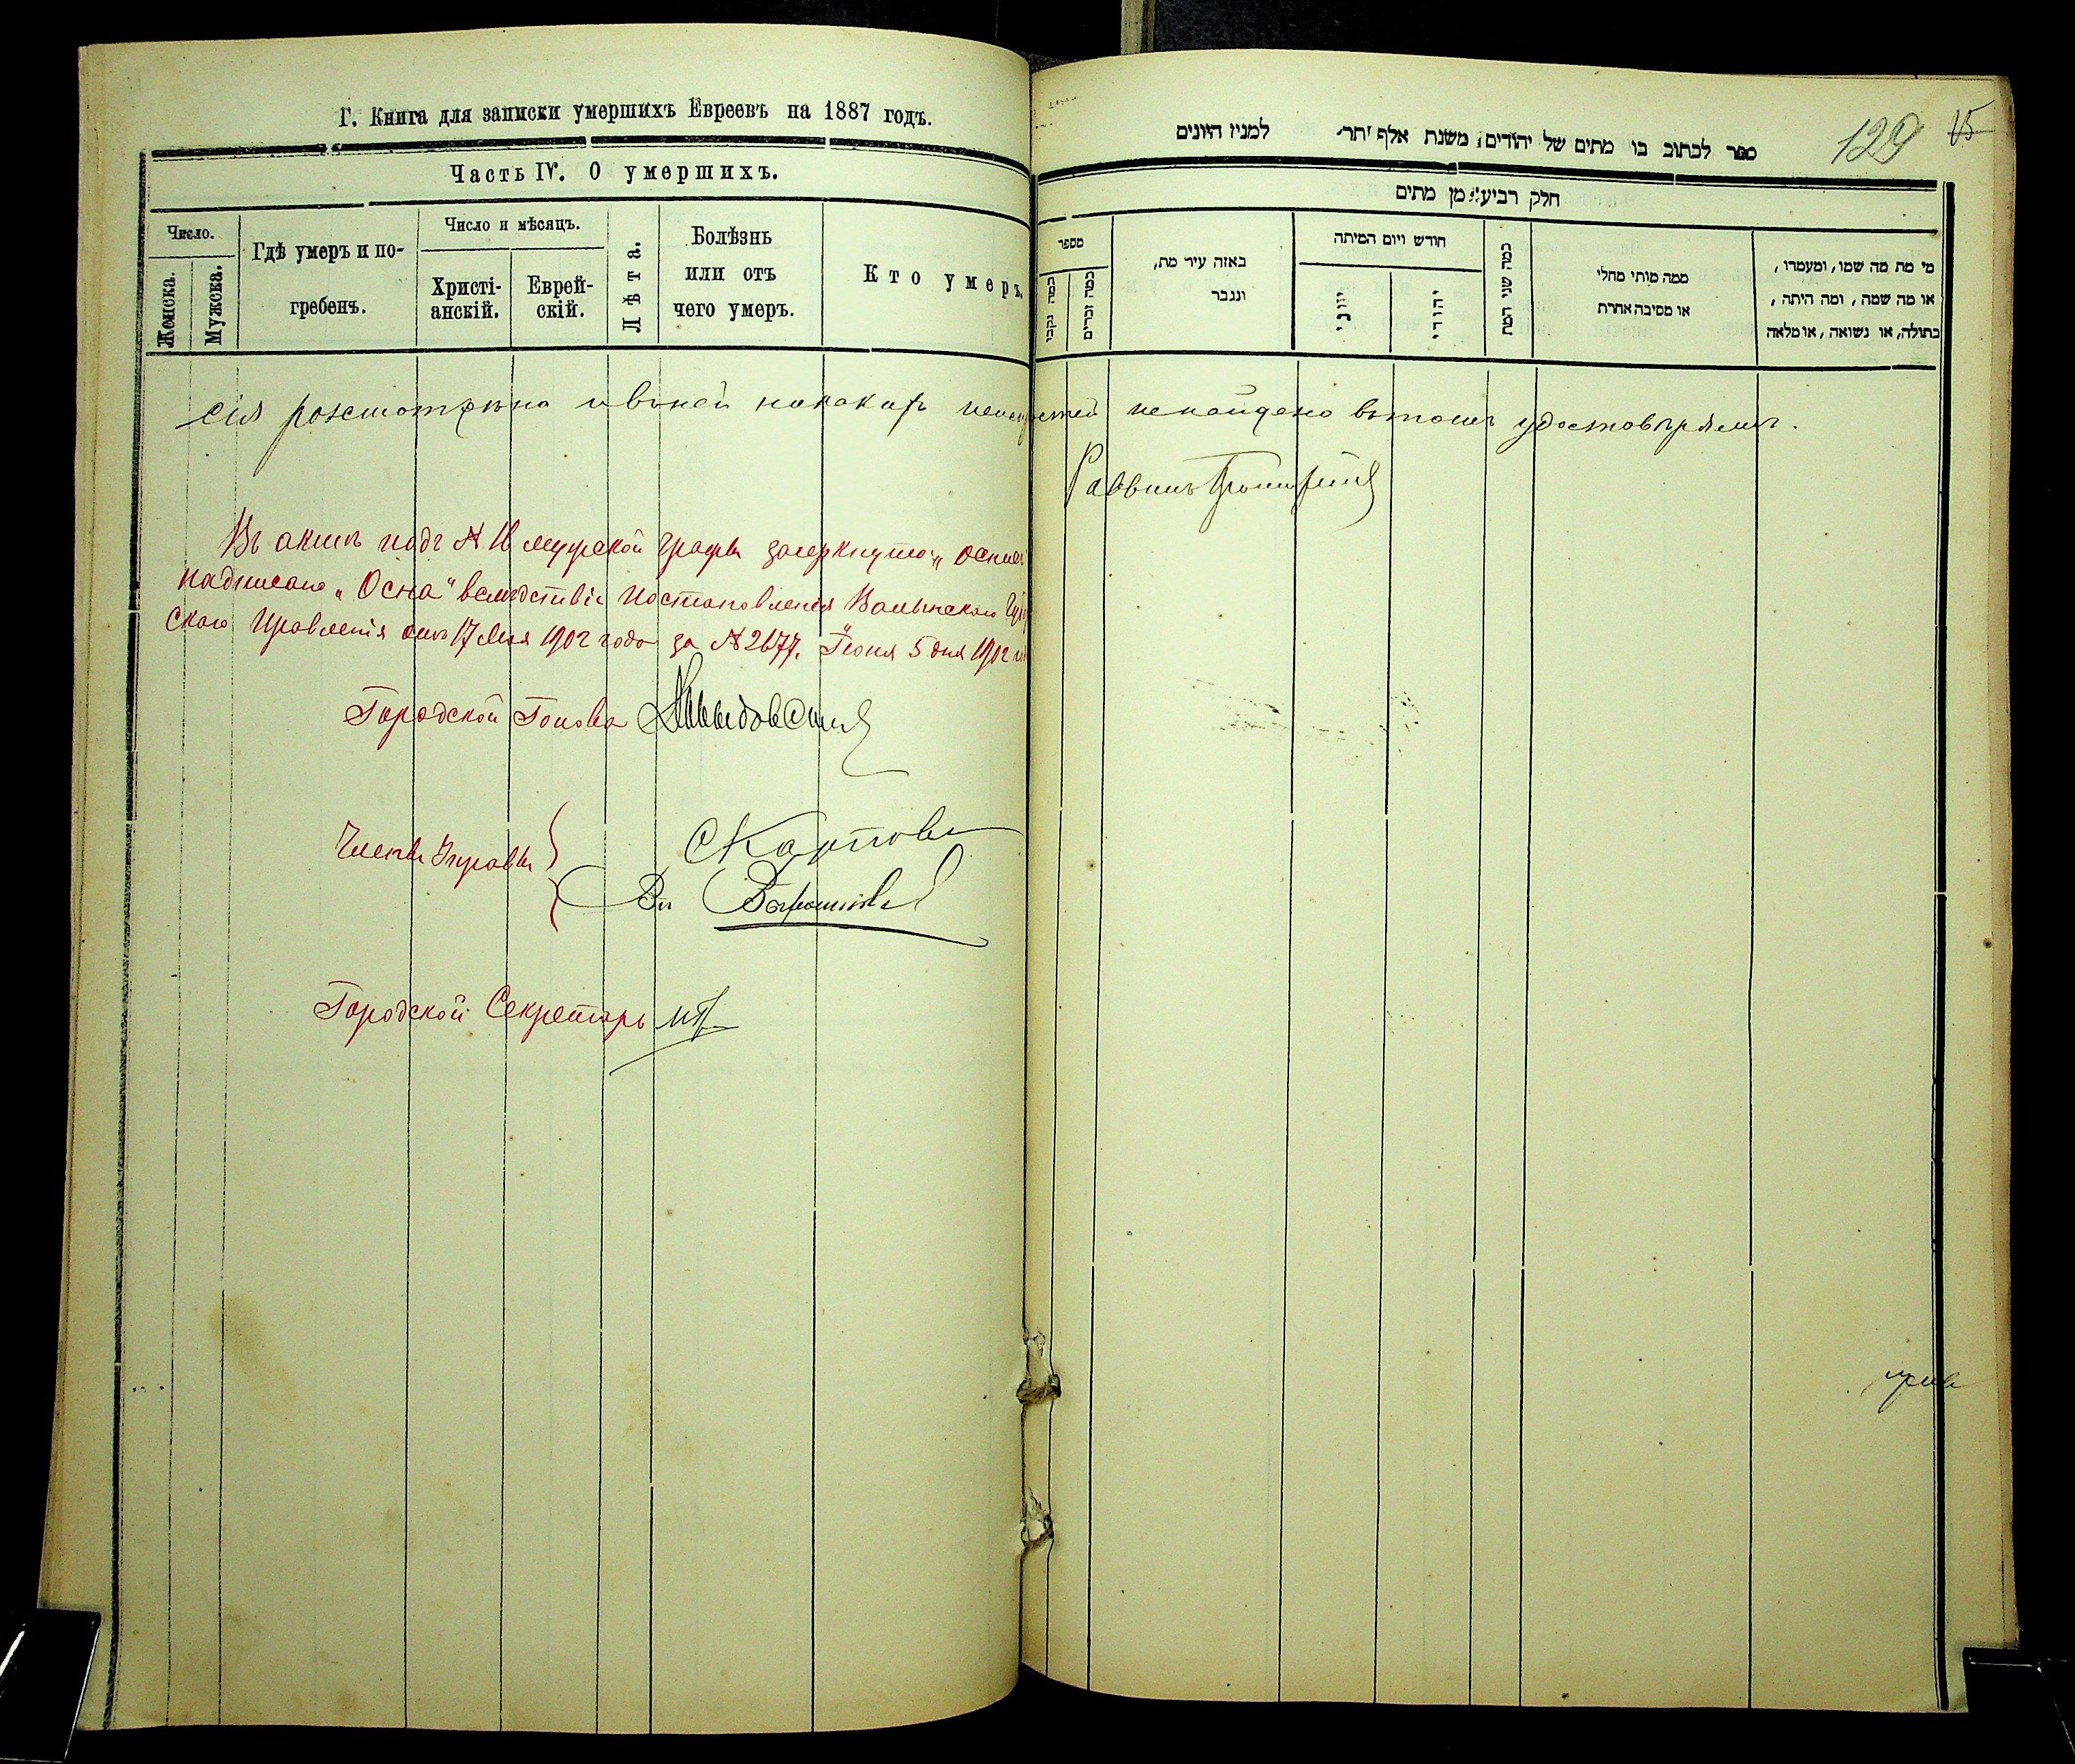 Г. Книга для записки умершихъ Евреевъ на 1887 годъ.
Часть IV. О умершихъ.
Число.
Женска.
Мужска.
Гдѣ умеръ и по-
гребенъ.
Число и мѣсяцъ.
Христі-
анскій.
Еврей-
скій.
Лѣта.
Болѣзнь
или отъ
чего умеръ.
Кто умеръ.
ספר לכתוב בו מתים של יהודים משנת אלף יתר למנין היונים
129 15
חלק רביעי מן מתים
מספר
כמה נקבו
כמה זכרים
באזה עיר מת,
ונגבר
חודש ויום המיתה
יווני
יהודי
כמה שני המת
ממה מותי מחלי
או מסיבה אחרת
מי מת מה שמו, ומעמדו,
או מה שמה, ומה היתה,
בתולה, או נשואה, או מלאה
сія розсмотрѣна и въ ней никакихъ не найдено въ томъ удостовѣряемъ.
Раввинъ
Въ актѣ подъ № 16 мужской графы зачеркнуто „
надписано „Осна" вслѣдствіе Постановленія Волынскаго
скаго Правленія отъ 17 Мая 1902 года за № 2677. Іюня 5 дня 1902
Городской Голова
Члены Управы
СКарпов
Городской Секретарь